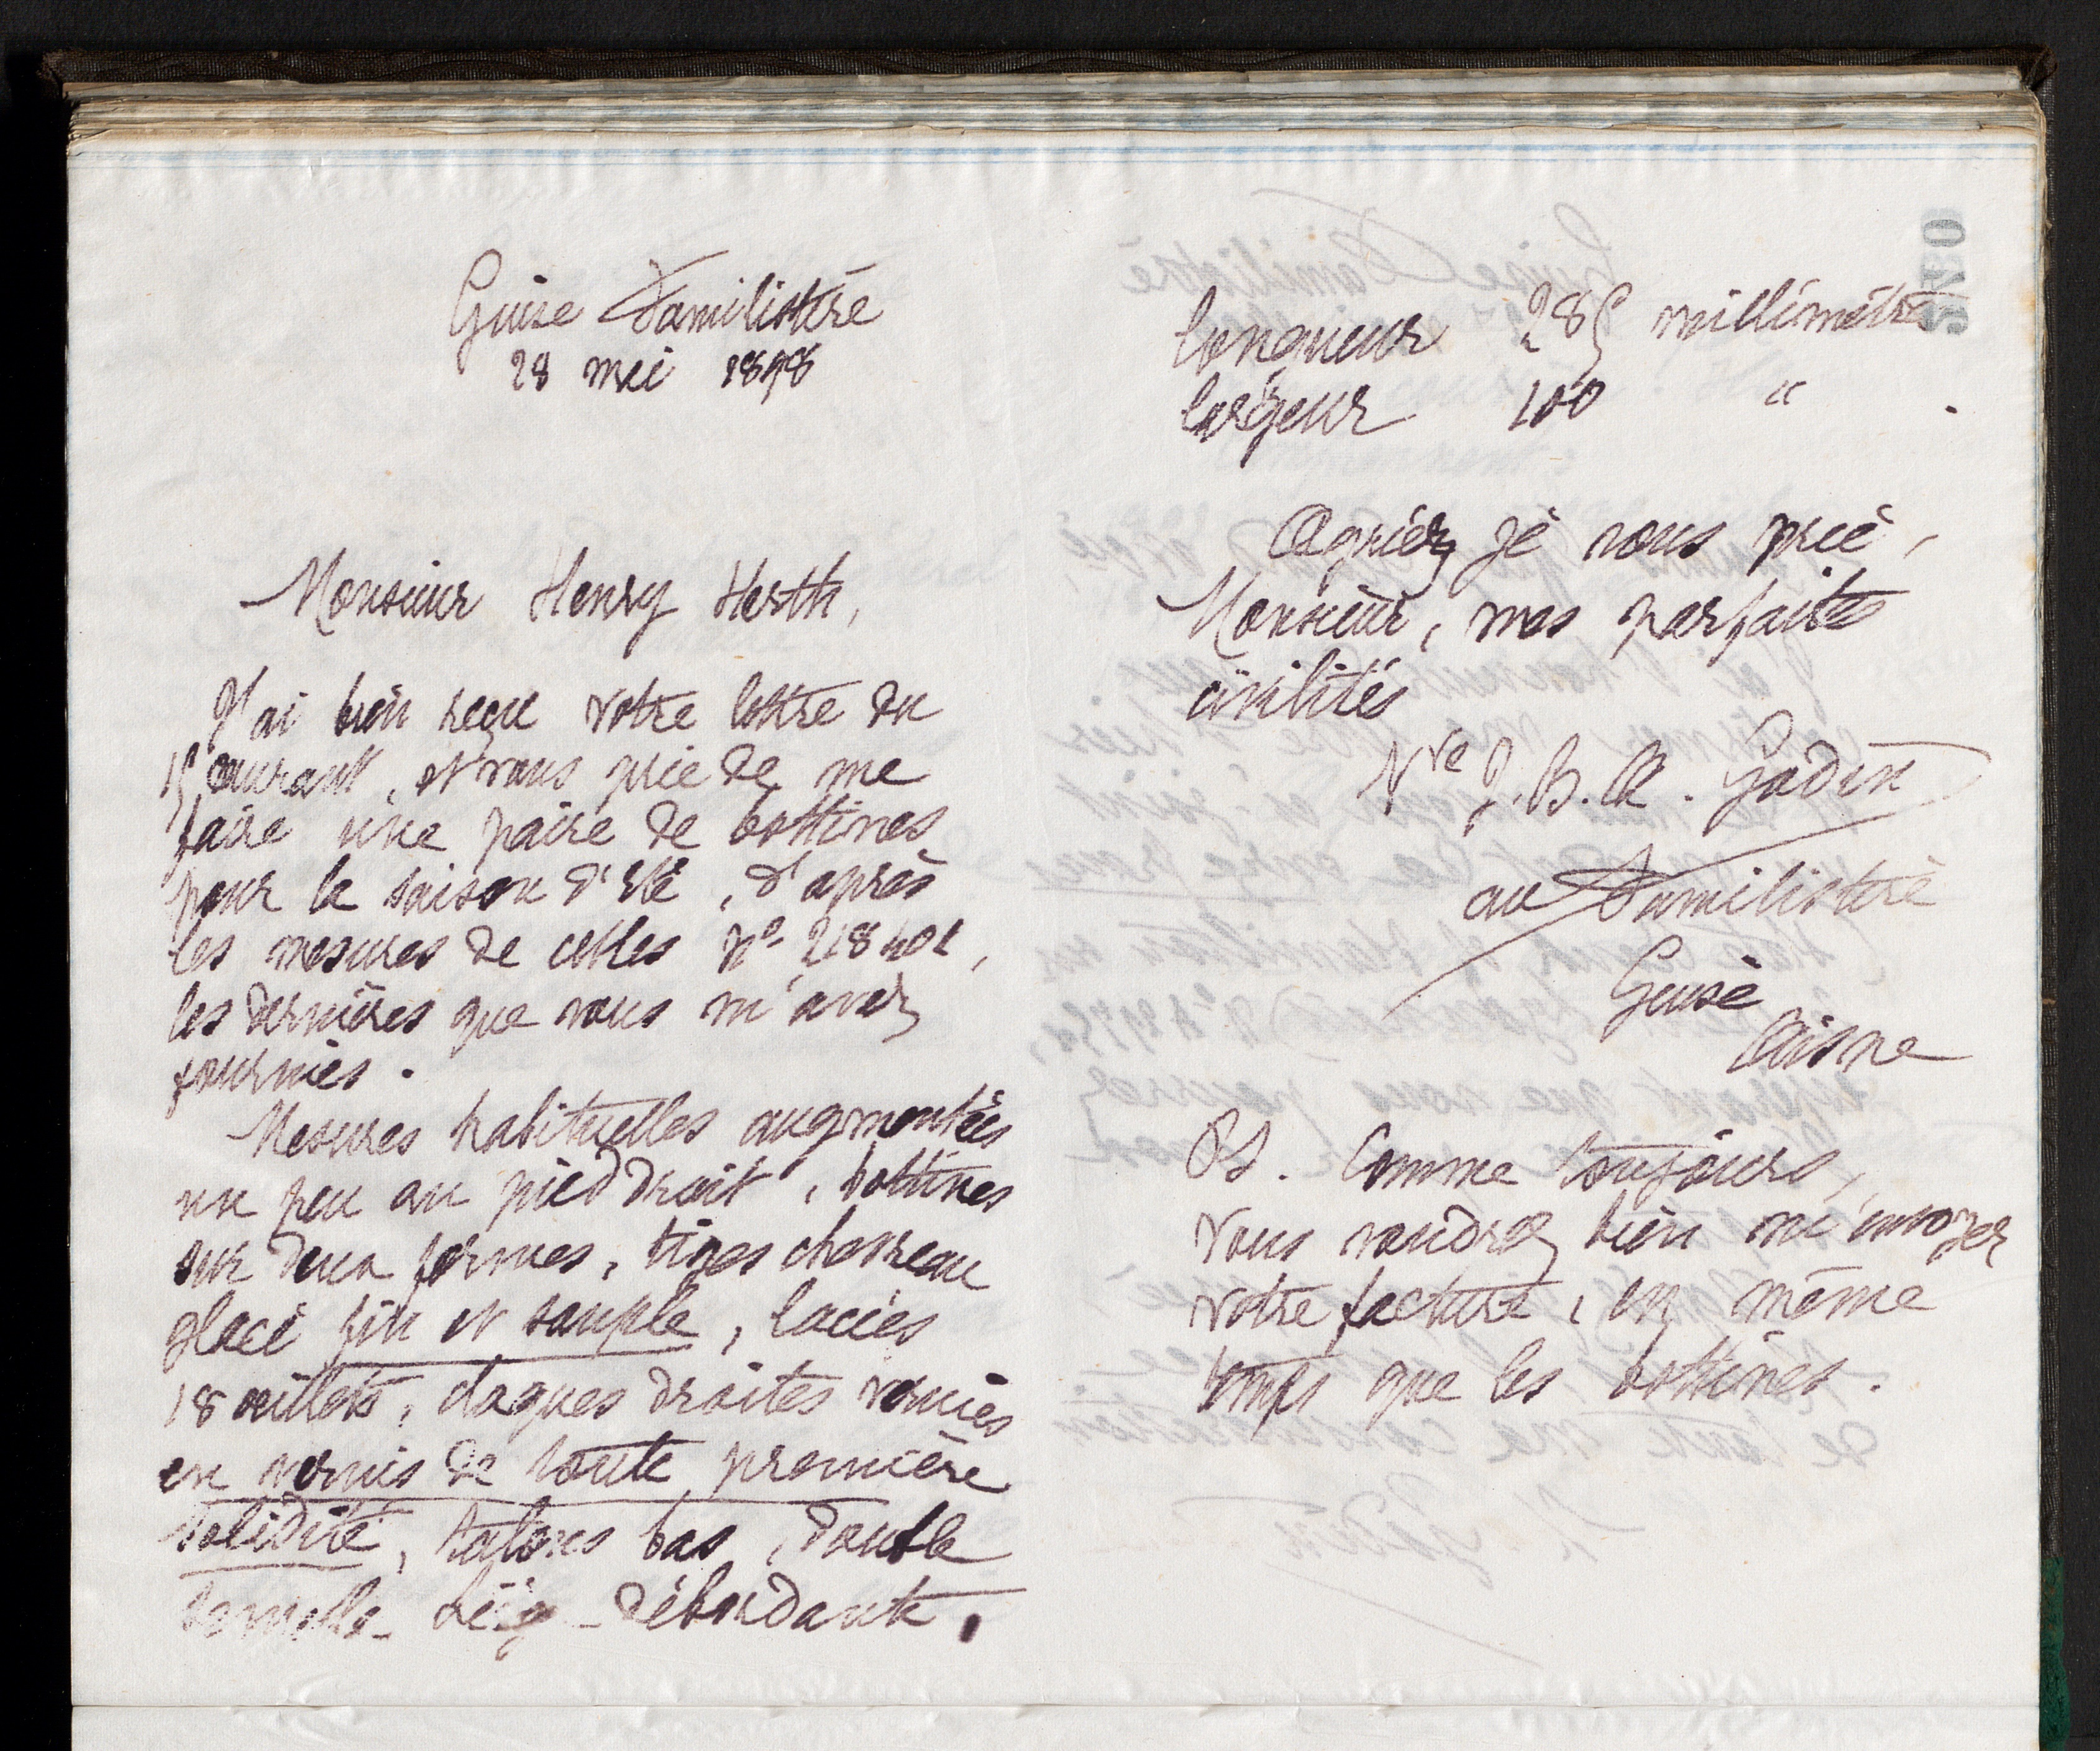 Guise Familistère
28 mai 1898
Monsieur Henry Herth,
J'ai bien reçu votre lettre du
15 courant, et vous prie de me
faire une paire de bottines
pour la saison d'été, d'après
les mesures de celles No 218401,
les dernières que vous m'avez
fournies.
Mesures habituelles augmentées
un peu au pied droit, bottines
sur deux formes, tiges chevreau
glacé fin et souple, lacées
18 œillets, claques droites vernies
en vernis de toute première
solidité, talons bas, double
semelle débordante.
longueur 285 millimètres
largeur 100 "
Agréez je vous prie,
Monsieur, mes parfaites
civilités
Vve J. B. A. Godin
au Familistère
Guise
Aisne
PS. Comme toujours,
vous voudrez bien m'envoyer
votre facture, en même
temps que les bottines.